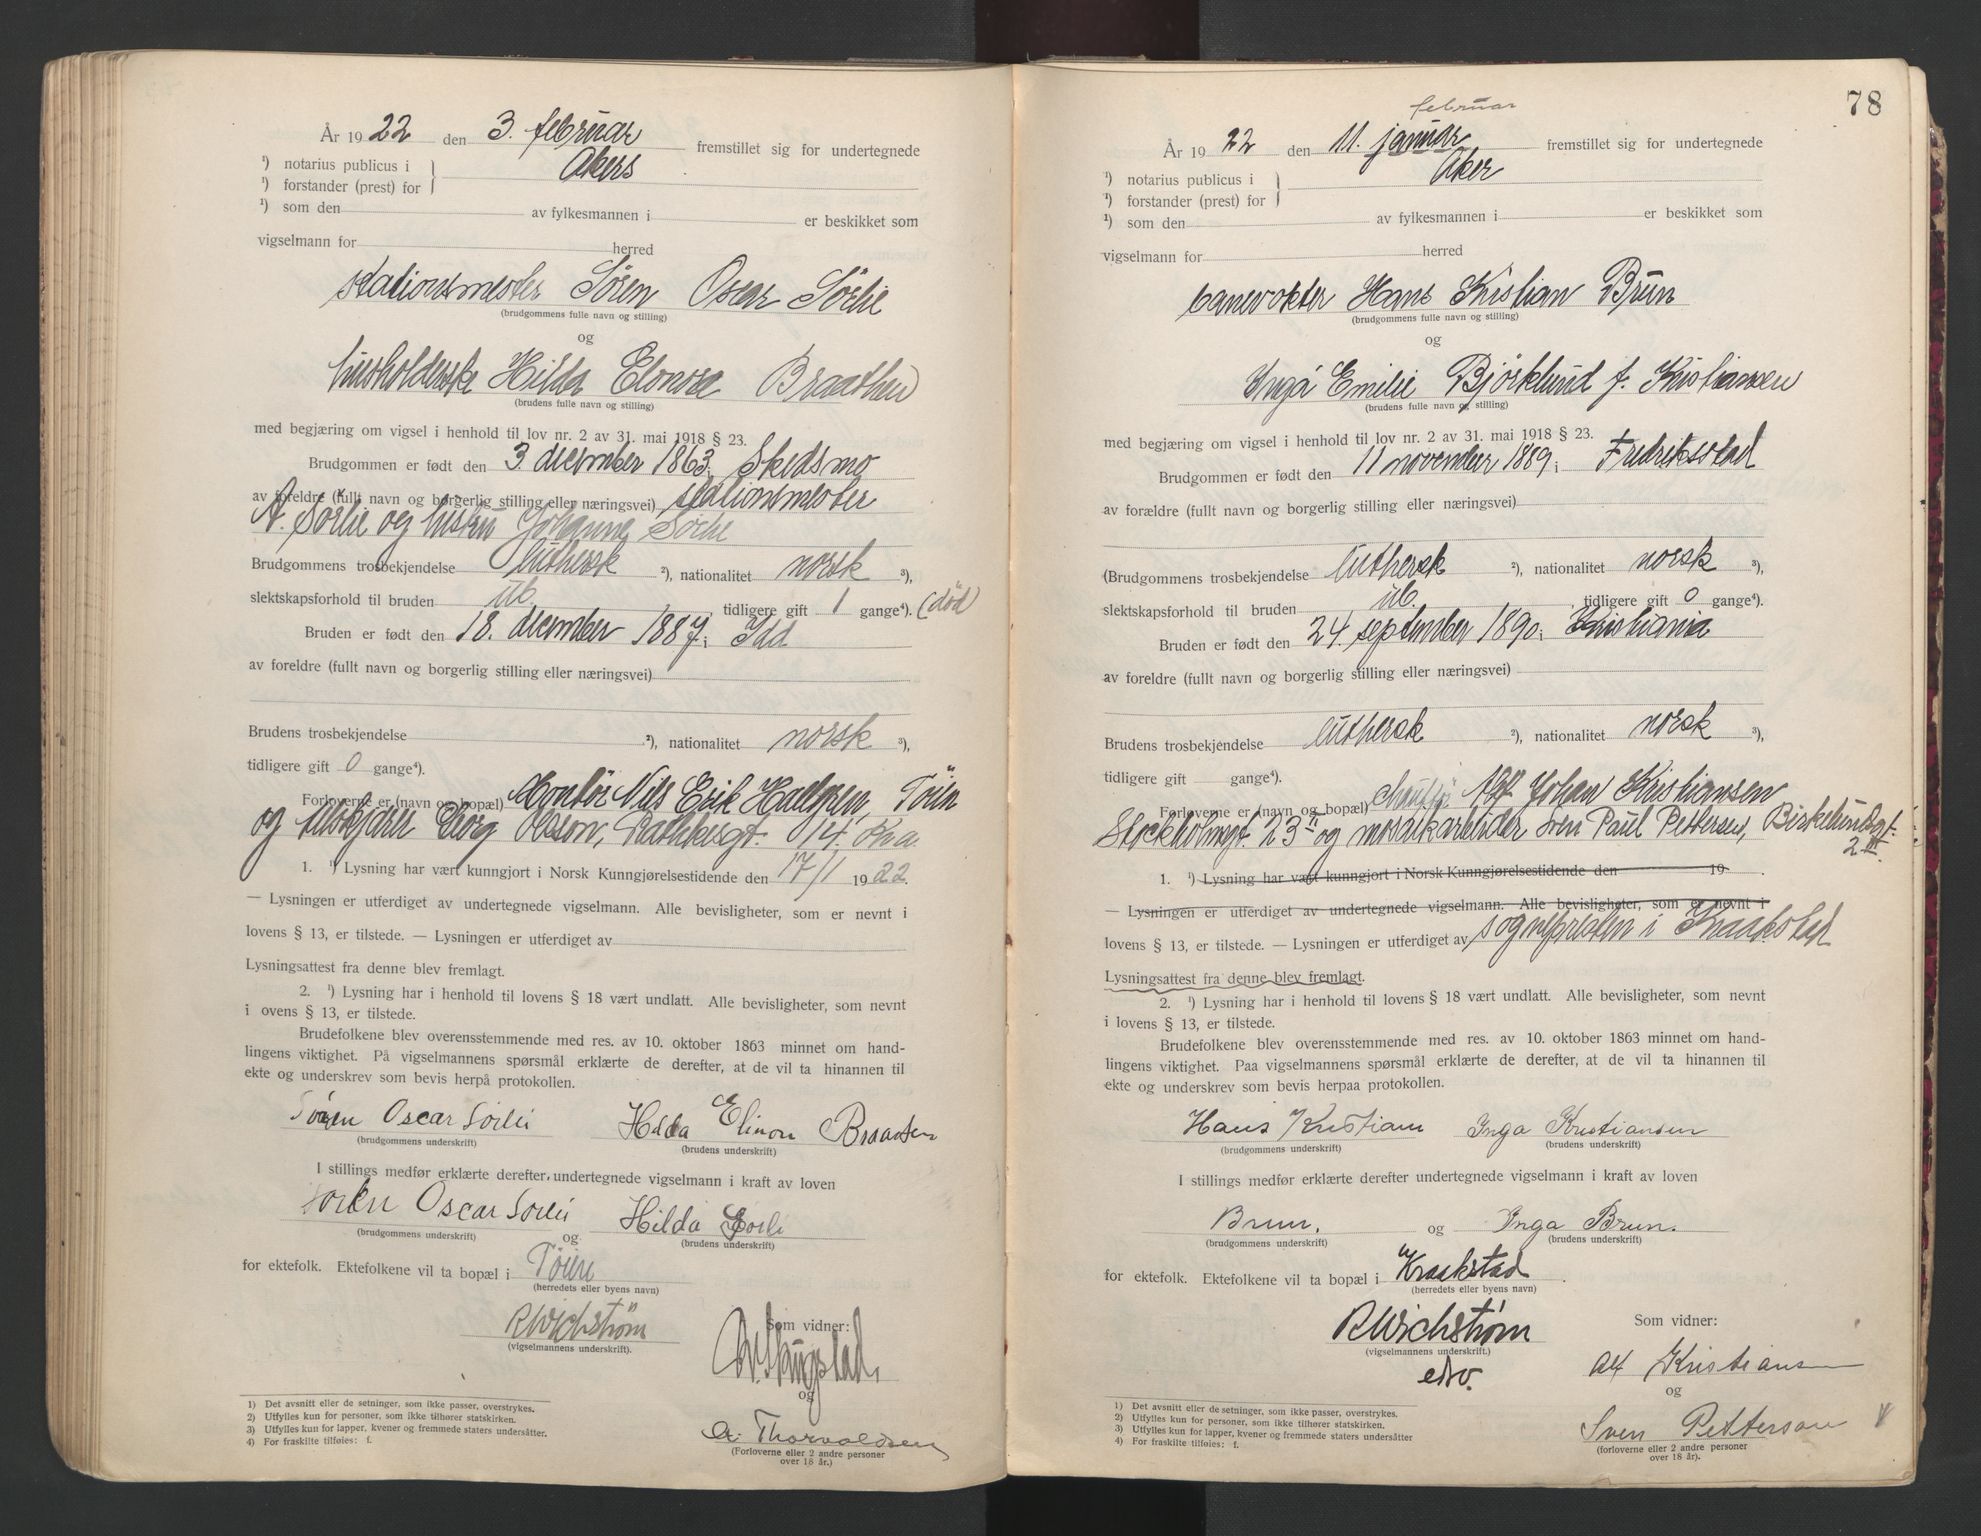 År 1922 den 3. februar fremstillet sig for undertegnede
¹) notarius publicus i
¹) forstander (prest) for
Akers
¹) som den av fylkesmannen i er beskikket som
vigselmann for herred
stationsmester Sören Oscar Sörlie
(brudgommens fulle navn og stilling)
og
husholderske Hilda Elonore Braathen
(brudens fulle navn og stilling)
med begjæring om vigsel i henhold til lov nr. 2 av 31. mai 1918 § 23.
Brudgommen er født den 3 december 1863 i Skedsmo
av foreldre (fullt navn og borgerlig stilling eller næringsvei) stationsmester
A. Sørlie og hustru Johanne Sørlie
Brudgommens trosbekjendelse luthersk ²), nationalitet norsk ³),
slektskapsforhold til bruden ub. , tidligere gift 1 gange⁴). (död)
Bruden er født den 18. december 1887 i Idd
av foreldre (fullt navn og borgerlig stilling eller næringsvei)
Brudens trosbekjendelse ²), nationalitet norsk ³),
tidligere gift 0 gange⁴).
Forloverne er (navn og bopæl) Montör Nils Erik Hallgren, Töien
og Georg Olsson, 14. Kra.
1. ¹) Lysning har vært kunngjort i Norsk Kunngjørelsestidende den 17/1 1922.
— Lysningen er utferdiget av undertegnede vigselmann. Alle bevisligheter, som er nevnt i
lovens § 13, er tilstede. — Lysningen er utferdiget av
Lysningsattest fra denne blev fremlagt.
2. ¹) Lysning har i henhold til lovens § 18 vært undlatt. Alle bevisligheter, som nevnt
i ovens § 13, er tilstede.
Brudefolkene blev overensstemmende med res. av 10. oktober 1863 minnet om hand-
lingens viktighet. På vigselmannens spørsmål erklærte de derefter, at de vil ta hinannen til
ekte og underskrev som bevis herpå protokollen.
Sören Oscar Sörlie Hilda Elinor Braathen
(brudgommens underskrift) (brudens underskrift)
I stillings medfør erklærte derefter undertegnede vigselmann i kraft av loven
Sören Oscar Sörlie og Hilda Sörli
(brudgommens underskrift) (brudens underskrift)
for ektefolk. Ektefolkene vil ta bopæl i Töien
(herredets eller byens navn)
R Wichstrøm
(vigselmannens underskrift).
Som vidner:
og
A. Thorvaldsen
(Forloverne eller 2 andre personer
over 18 år.)
1) Det avsnitt eller de setninger, som ikke passer, overstrykes.
2) Utfylles kun for personer, som ikke tilhører statskirken.
3) Utfylles kun for lapper, kvener og fremmede staters undersåtter.
4) For fraskilte tilføies: f.
78
februar
År 1922 den 11. januar fremstillet sig for undertegnede
¹) notarius publicus i
¹) forstander (prest) for
Aker
¹) som den av fylkesmannen i er beskikket som
vigselmann for herred
banevokter Hans Kristian Brun
(brudgommens fulle navn og stilling)
og
Inga Emilie Björklund f. Kristiansen
(brudens fulle navn og stilling)
med begjæring om vigsel i henhold til lov nr. 2 av 31. mai 1918 § 23.
Brudgommen er født den 11 november 1889 i Fredriksstad
av forældre (fullt navn og borgerlig stilling eller næringsvei)
(Brudgommens trosbekjendelse luthersk ²), nationalitet norsk ³),
slektskapsforhold til bruden ub. , tidligere gift 0 gange⁴).
Bruden er født den 24. september 1890 i Kristiania
av foreldre (fullt navn og borgerlig stilling eller næringsvei)
Brudens trosbekjendelse luthersk ²), nationalitet norsk ³),
tidligere gift gange⁴).
Forloverne er (navn og bopæl) Alf Johan Kristiansen
Stockholmsgt. 23 II og mosaikarbeider Sven Paul Pettersen, Birkelundsgt.
2 III.
1. ¹) Lysning har vært kunngjort i Norsk Kunngjørelsestidende den 19
— Lysningen er utferdiget av undertegnede vigselmann. Alle bevisligheter, som er nevnt i
lovens § 13, er tilstede. — Lysningen er utferdiget av sognepresten i Kraakstad
Lysningsattest fra denne blev fremlagt.
2. ¹) Lysning har i henhold til lovens § 18 vært undlatt. Alle bevisligheter, som nevnt
i lovens § 13, er tilstede.
Brudefolkene blev overensstemmende med res. av 10. oktober 1863 minnet om hand-
lingens viktighet. Paa vigselmannens spørsmål erklærte de derefter, at de vil ta hinannen til
ekte og underskrev som bevis herpaa protokollen.
Hans Kristian Inga Kristiansen
(brudgommens underskrift) (brudens underskrift)
I stillings medfør erklærte derefter undertegnede vigselmann i kraft av loven
Brun. og Inga Brun.
(brudgommens underskrift) (brudens underskrift)
for ektefolk. Ektefolkene vil ta bopæl i Kraakstad
(herredets eller byens navn)
R Wichstrøm
(vigselmannens underskrift.)
Som vidner:
Alf Kristiansen
og
Sven Pettersen
(forloverne eller 2 andre personer
over 18 år).
1) Det avsnitt eller de setninger, som ikke passer, overstrykes.
2) Utfylles kun for personer, som ikke tilhører statskirken.
3) Utfylles kun for lapper, kvener og fremmede staters undersåtter
4) For fraskilte tilføies: f.